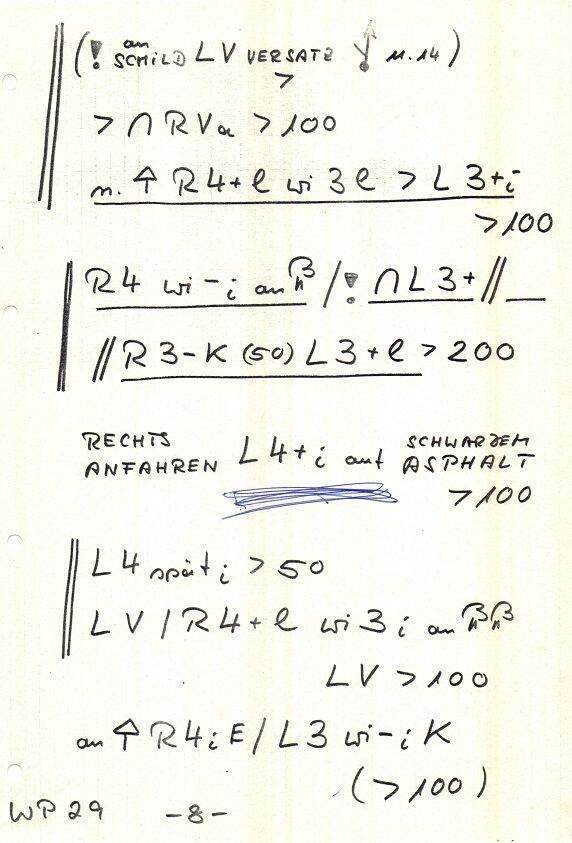 (! an SCHILD LV VERSATZ n. 14)
>
> ∩ RVa > 100
n. ↑ R4+l wi 3l > L3+i
> 100
R4 wi-i an / ! ∩ L3+ //
// R3-K (50) L3+l > 200
RECHTS ANFAHREN L4+i auf SCHWARZEM ASPHALT
> 100
L4 spät i > 50
LV / R4+l wi 3i an
LV > 100
an ↑ R4iE / L3 wi-iK
(> 100)
WP 29 -8-